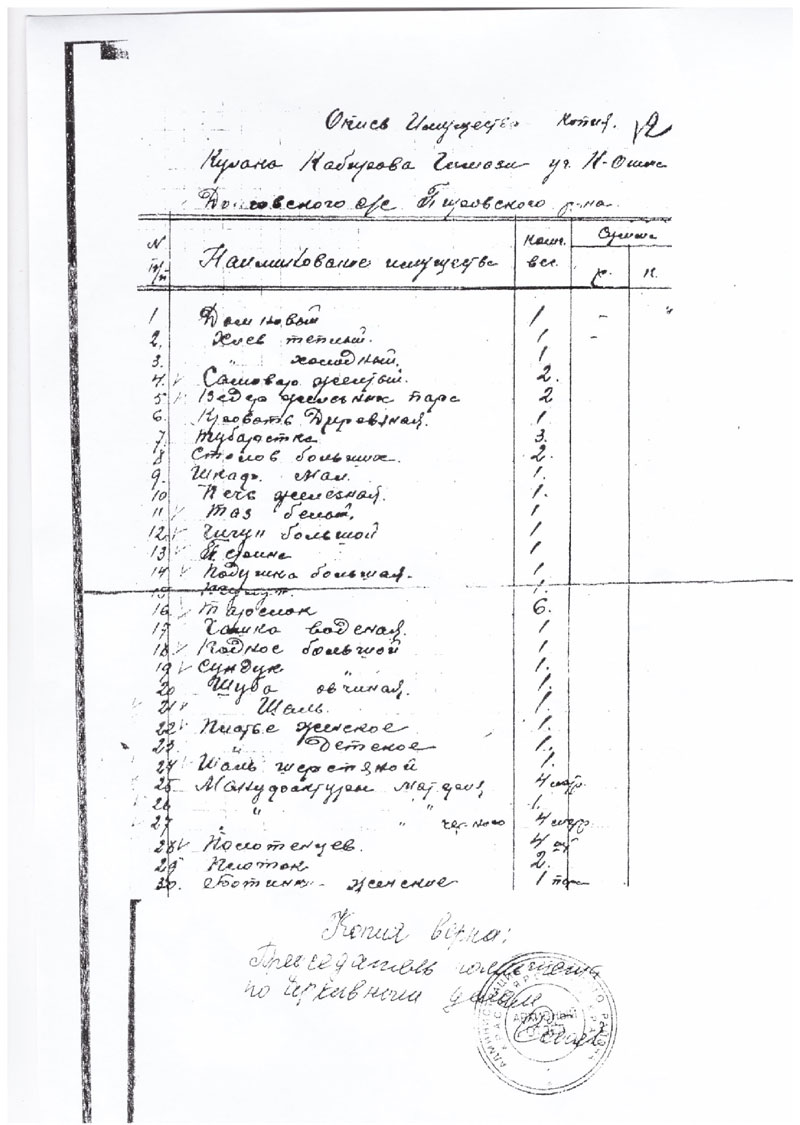 Опись Имущества Копия. 2
Кулана Кабирова уч. Н-
с/с Пировского р-на
N п/п Наименование имущества Колич. вещ. Сумма
р. к.
1 Дом новый 1 -
2. Хлев теплый. 1 -
3. " холодный. 1
4. Самовар желтый. 2.
5 Ведер железных пара 2
6. Кровать Диревяная. 1
7. Тубаретка 3.
8 Столов больших. 2.
9. Шкафъ мал. 1.
10 Печь железная. 1.
11 Таз белой. 1
12 Чигун большой 1
13 Перина 1
14 Подушка большая. 1
15 1.
16 Тарелок 6.
17 Чашка 1
18 Поднос большой 1
19 Сундук " 1.
20 Шуба овчиная. 1.
21 Шаль. 1.
22 Платье женское 1.
23 " Детское 1.
24 Шаль шерстяной 1.
25 Мануфактуры 4 метр.
26 " " 1.
27 " " 4 метр.
28 Полотенцев. 4 шт
29 Платок 2.
30. Ботинки женские 1 пара
Копия верна:
Председатель
по архивным делам